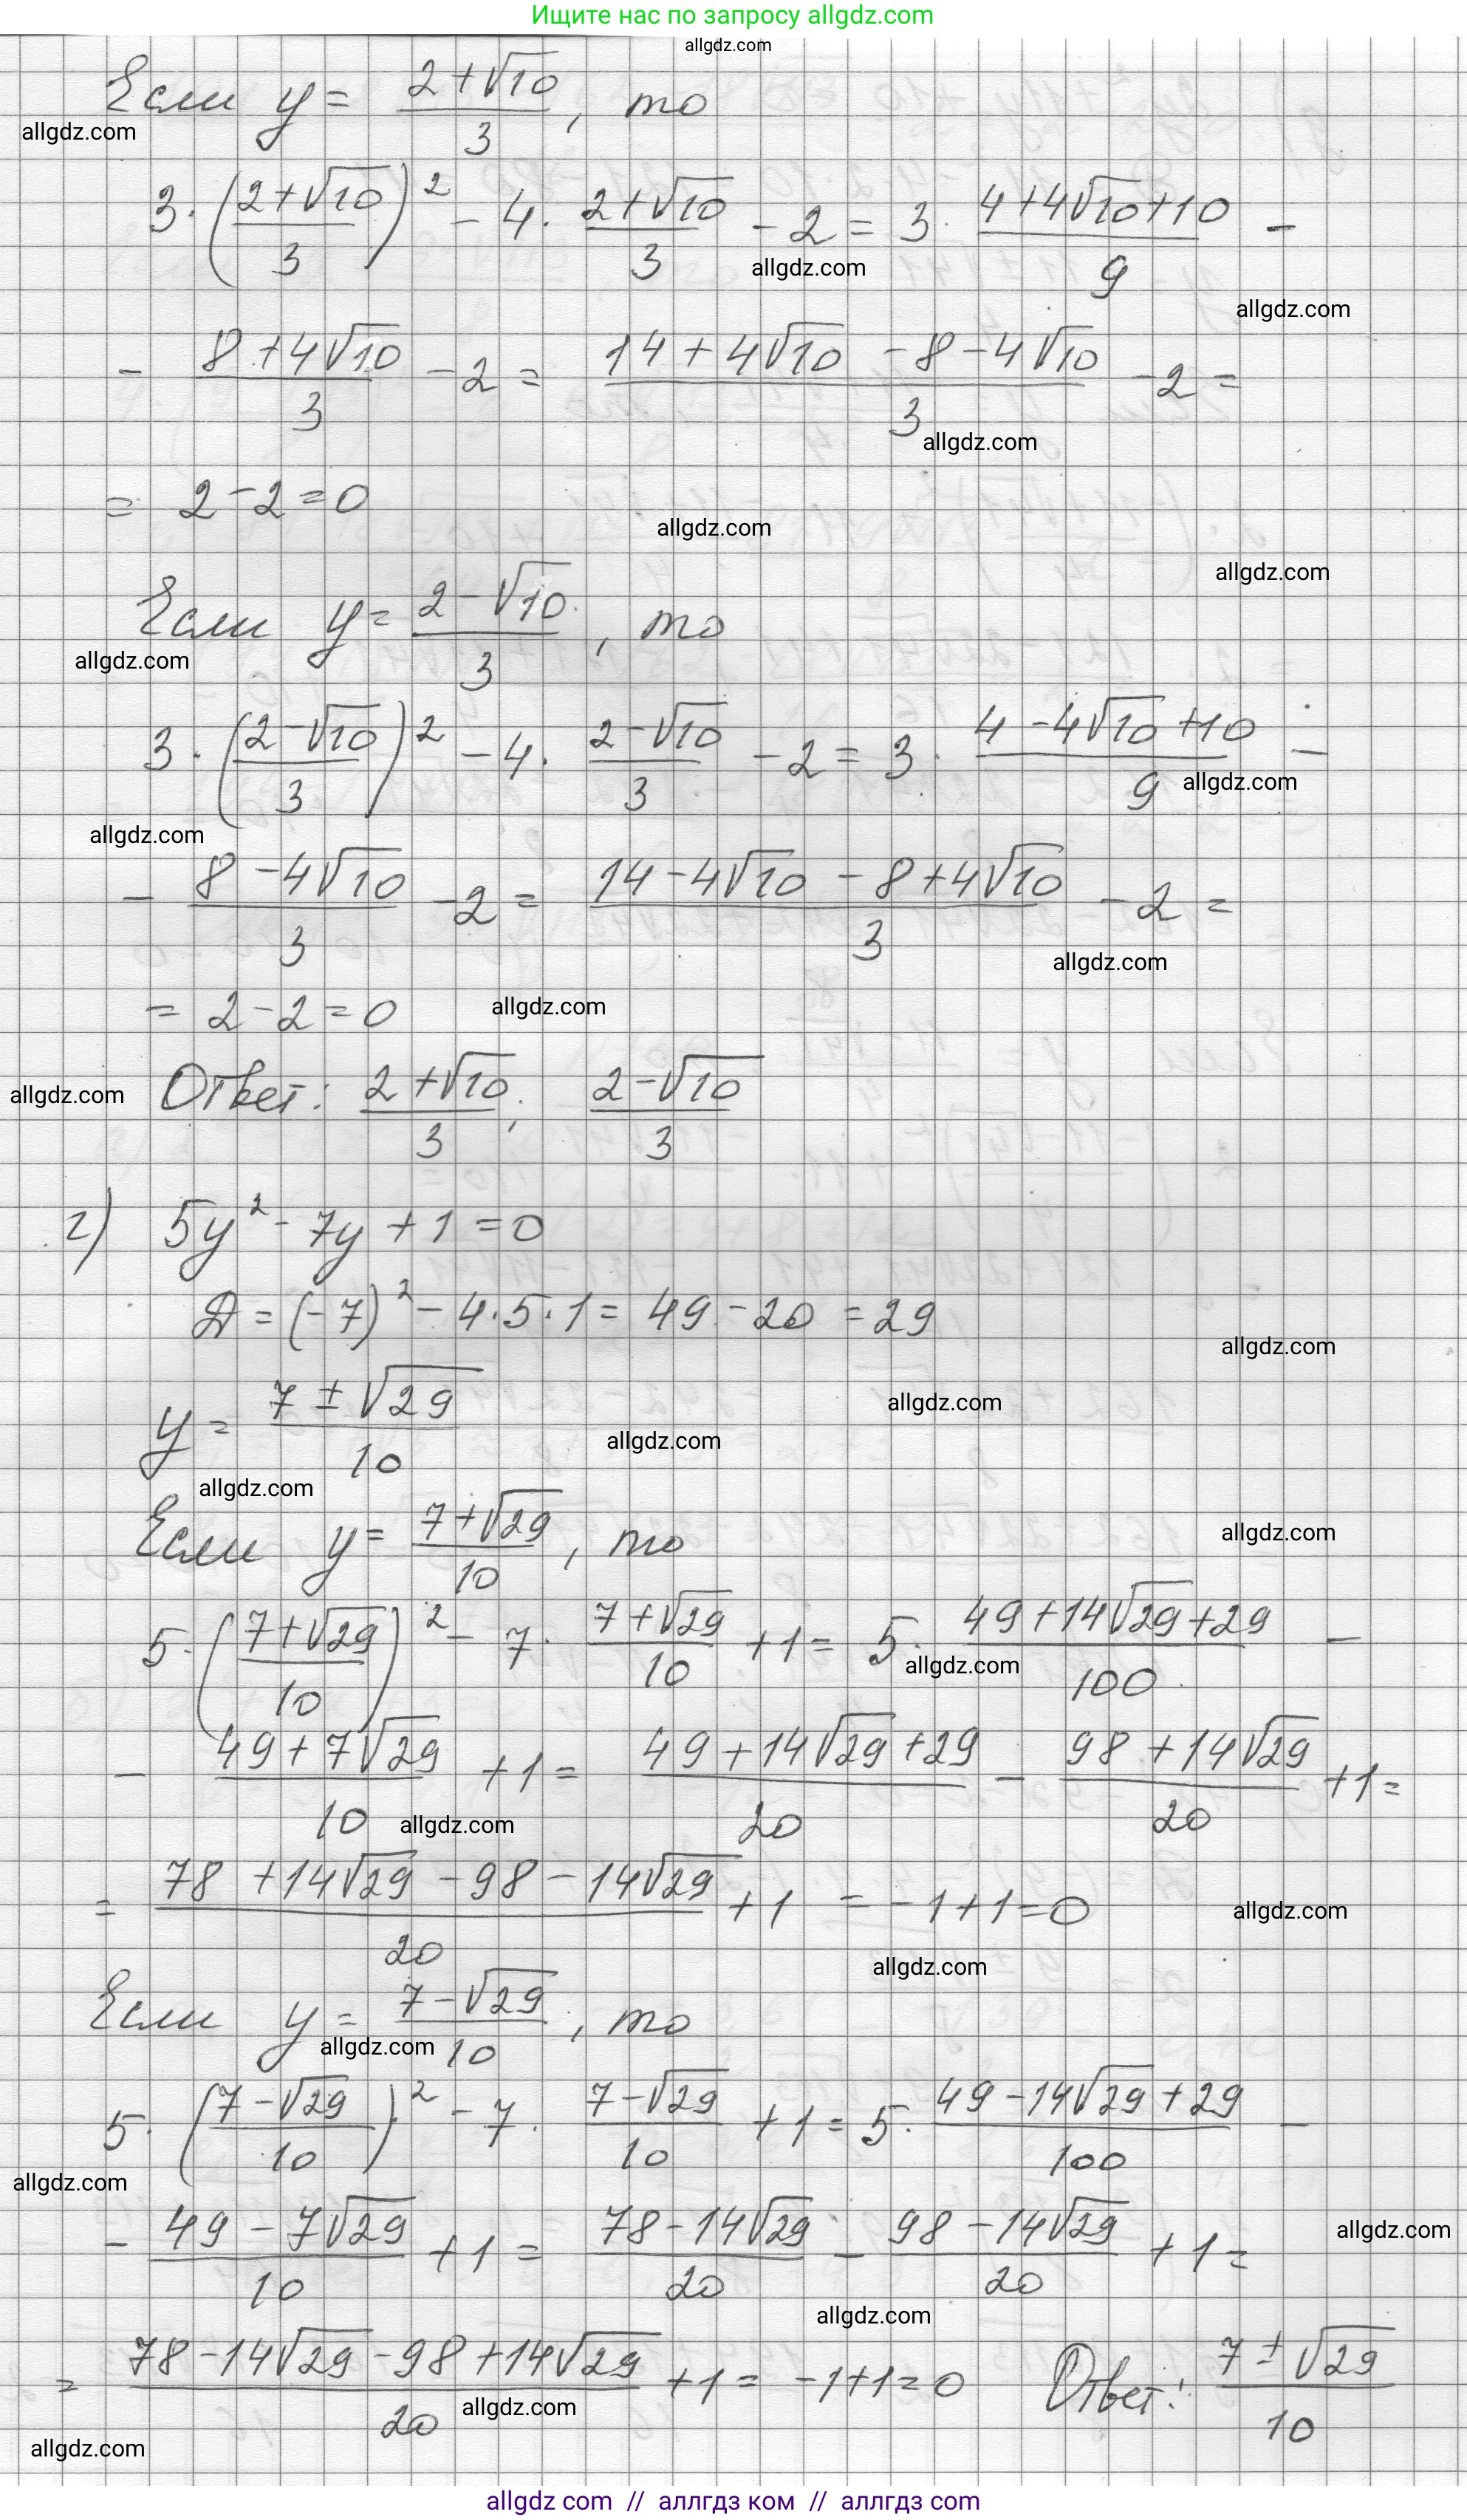 Ищите нас по запросу allgdz.com
allgdz.com
Если y = (2+√10)/3, то
allgdz.com
3·((2+√10)/3)² − 4·(2+√10)/3 − 2 = 3·(4+4√10+10)/9 −
allgdz.com
allgdz.com
− (8+4√10)/3 − 2 = (14+4√10−8−4√10)/3 − 2 =
allgdz.com
= 2−2=0
allgdz.com
allgdz.com
Если y = (2−√10)/3, то
allgdz.com
3·((2−√10)/3)² − 4·(2−√10)/3 − 2 = 3·(4−4√10+10)/9 −
allgdz.com
allgdz.com
− (8−4√10)/3 − 2 = (14−4√10−8+4√10)/3 − 2 =
allgdz.com
= 2−2=0
allgdz.com
allgdz.com
Ответ: (2+√10)/3; (2−√10)/3
г) 5y² − 7y + 1 = 0
Д = (−7)² − 4·5·1 = 49 − 20 = 29
allgdz.com
y = (7±√29)/10
allgdz.com
allgdz.com
allgdz.com
Если y = (7+√29)/10, то
allgdz.com
5·((7+√29)/10)² − 7·(7+√29)/10 + 1 = 5·(49+14√29+29)/100 −
allgdz.com
− (49+7√29)/10 + 1 = (49+14√29+29)/20 − (98+14√29)/20 + 1 =
allgdz.com
= (78+14√29−98−14√29)/20 + 1 = −1+1=0
allgdz.com
allgdz.com
Если y = (7−√29)/10, то
allgdz.com
5·((7−√29)/10)² − 7·(7−√29)/10 + 1 = 5·(49−14√29+29)/100 −
allgdz.com
− (49−7√29)/10 + 1 = (78−14√29)/20 − (98−14√29)/20 + 1 =
allgdz.com
allgdz.com
= (78−14√29−98+14√29)/20 + 1 = −1+1=0 Ответ: (7±√29)/10
allgdz.com
allgdz.com
allgdz com // аллгдз ком // аллгдз com